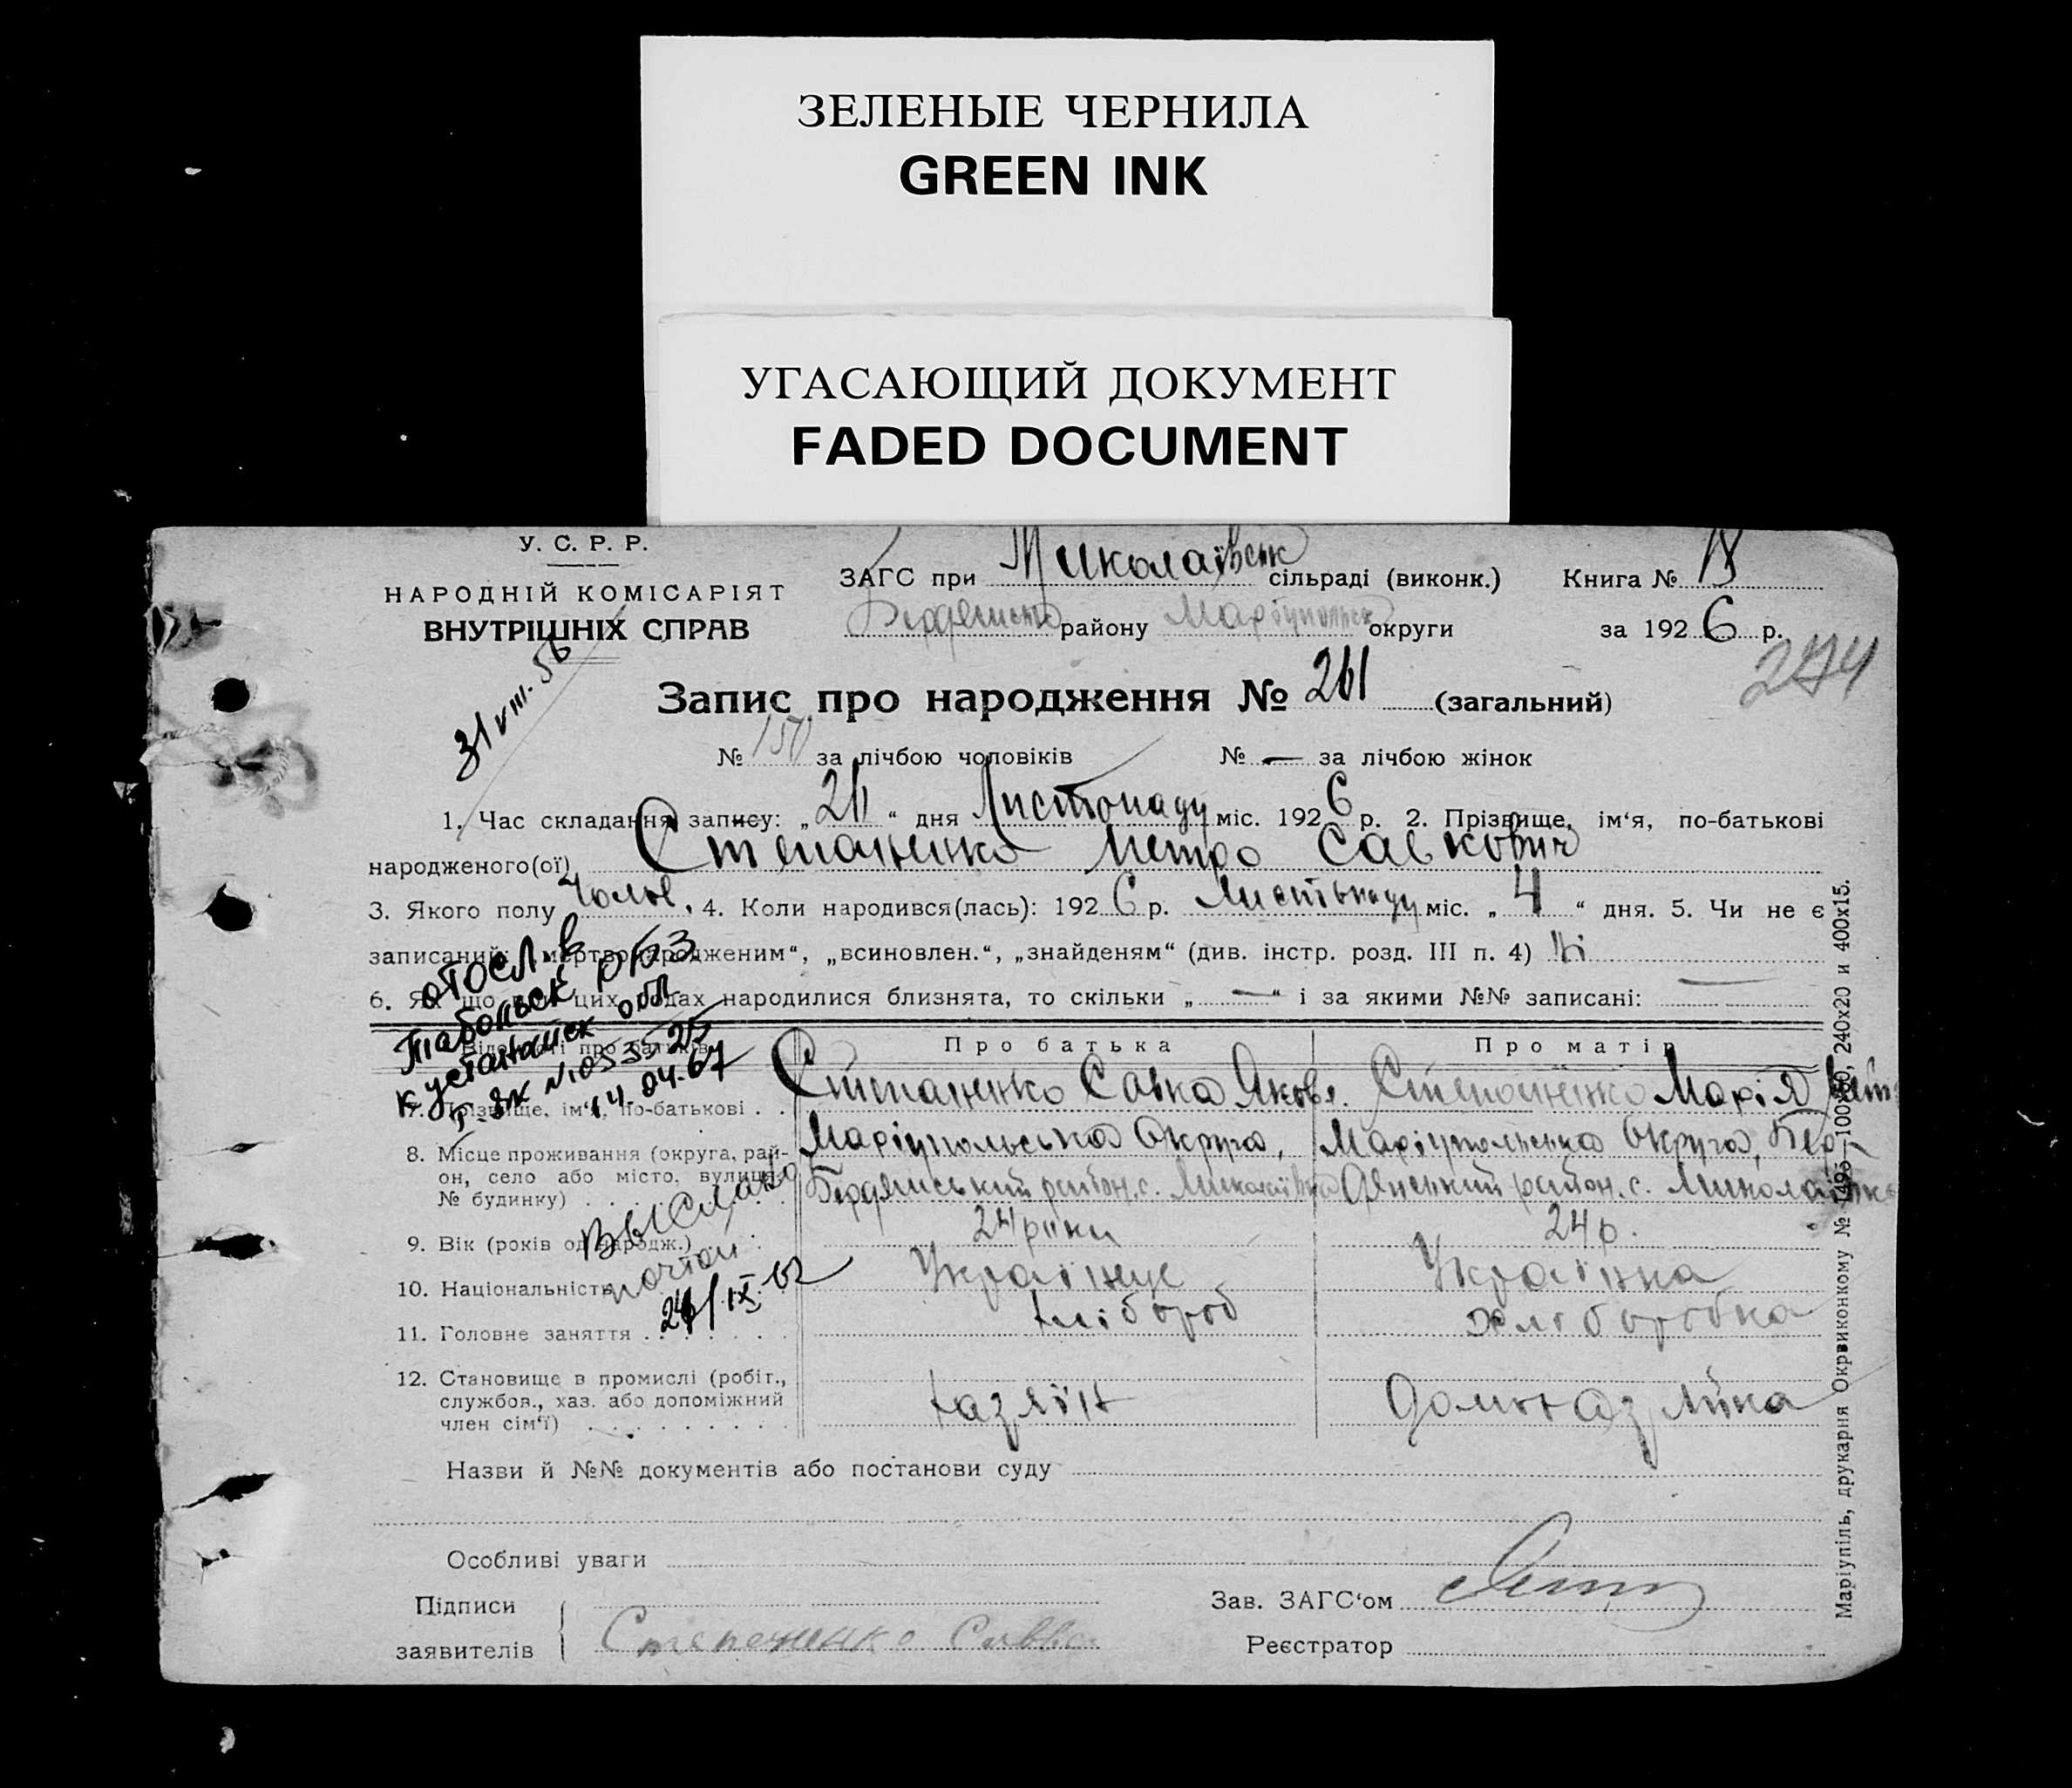 ЗЕЛЕНЫЕ ЧЕРНИЛА
GREEN INK
УГАСАЮЩИЙ ДОКУМЕНТ
FADED DOCUMENT
У. С. Р. Р.
НАРОДНІЙ КОМІСАРІЯТ
ВНУТРІШНІХ СПРАВ
ЗАГС при Миколаївськ сільраді (виконк.) Книга №
району Маріупольск округи за 1926 р.
274
31 VIII. 56
Запис про народження № 261 (загальний)
№ 150 за лічбою чоловіків № — за лічбою жінок
1. Час складання запису: „ “ дня Листопаду міс. 1926 р. 2. Прізвище, ім‘я, по-батькові
народженого(ої) Степаненко Петро Савкович
3. Якого полу Чолов. 4. Коли народився(лась): 1926 р. Листопаду міс. „ 4 “ дня. 5. Чи не є
записаний: „мертвонародженим“, „всиновлен.“, „знайденям“ (див. інстр. розд. III п. 4) Ні
6. Якщо при цих родах народилися близнята, то скільки „ — “ і за якими №№ записані: —
отосл. в
Кустанайск обл
14.04.67
Відомості про батьків Про батька Про матір
7. Прізвище, ім‘я, по-батькові . . Степаненко Савка Яковл. Степаненко Марія
8. Місце проживання (округа, рай- Маріупольська Округа, Маріупольська Округа, Бер-
он, село або місто, вулиця, Бердянський район, с. Миколаївка дянський район. с. Миколаївка
№ будинку)
9. Вік (років од народж.) 24 роки 24 р.
10. Національність Українец Українка
11. Головне заняття хлібороб хлібοробка
12. Становище в промислі (робіт.,
службов., хаз. або допоміжний хазяїн домохазяйка
член сім‘ї)
Выслано
почтой
24/IX-62
Назви й №№ документів або постанови суду
Особливі уваги
Підписи
заявителів Степаненко Савка
Зав. ЗАГС‘ом
Реєстратор
Маріупіль, друкарня Окрвиконкому № 1495—100х50, 240х20 и 400х15.